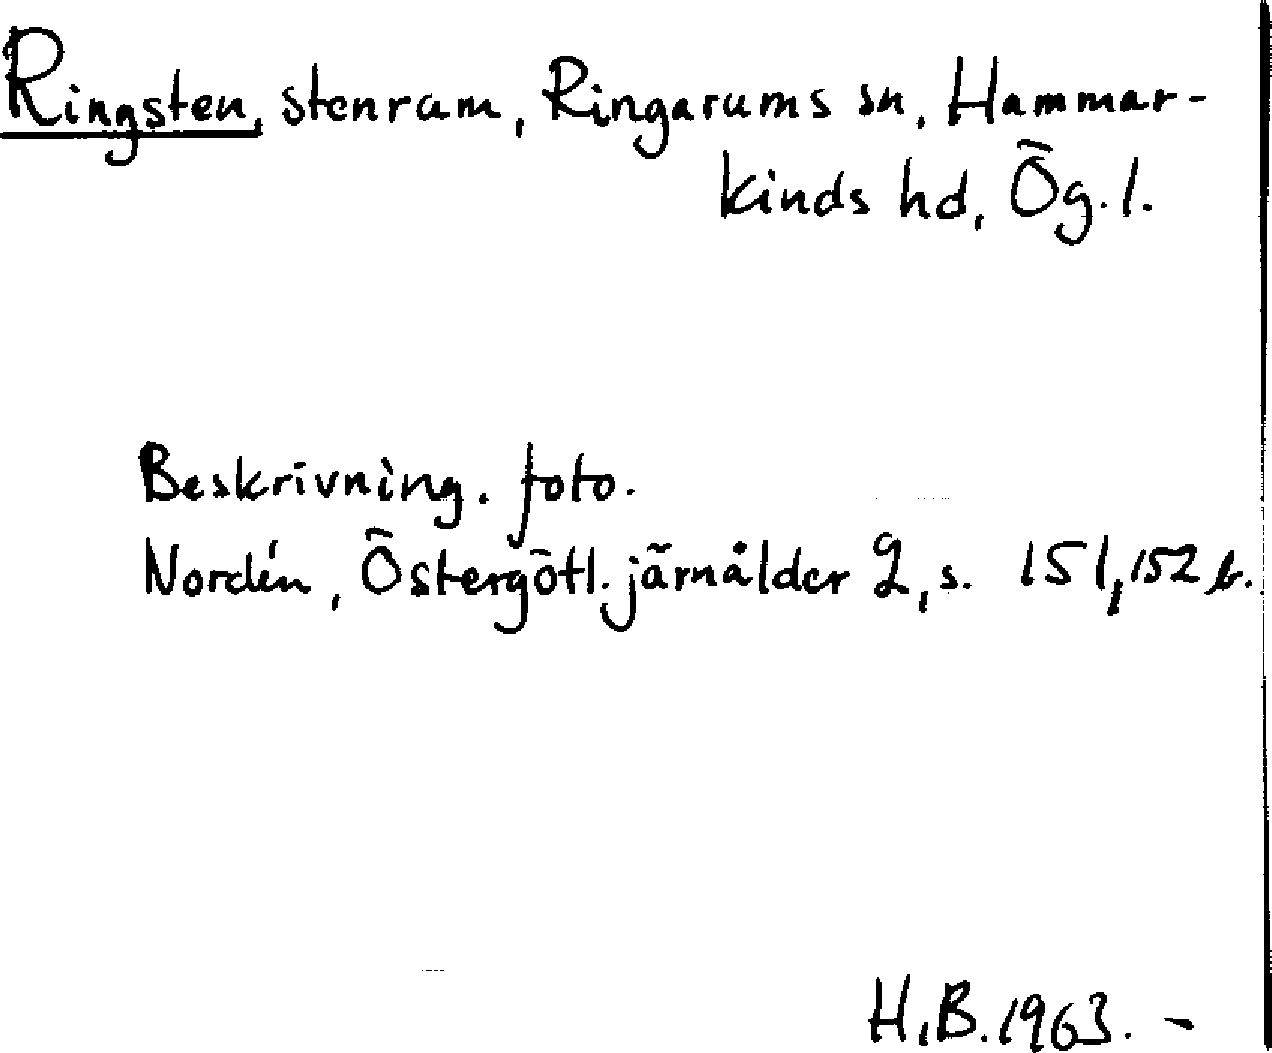 Ringsten, stenram, Ringarums sn, Hammar-
kinds hd, Ög. l.
Beskrivning. foto.
Nordén, Östergötl. järnålder 2, s. 151, 152 b.
H.B. 1963. -